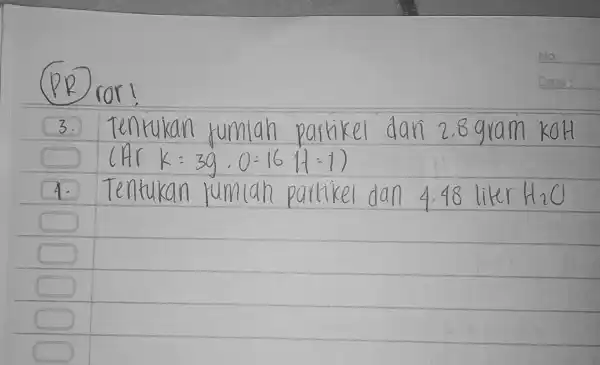 No.
Date
PR ror!
3. Tentukan jumlah partikel dari 2.8 gram KOH
(Ar K = 39 . O = 16 H = 1)
4. Tentukan jumlah partikel dari 4.48 liter H2O